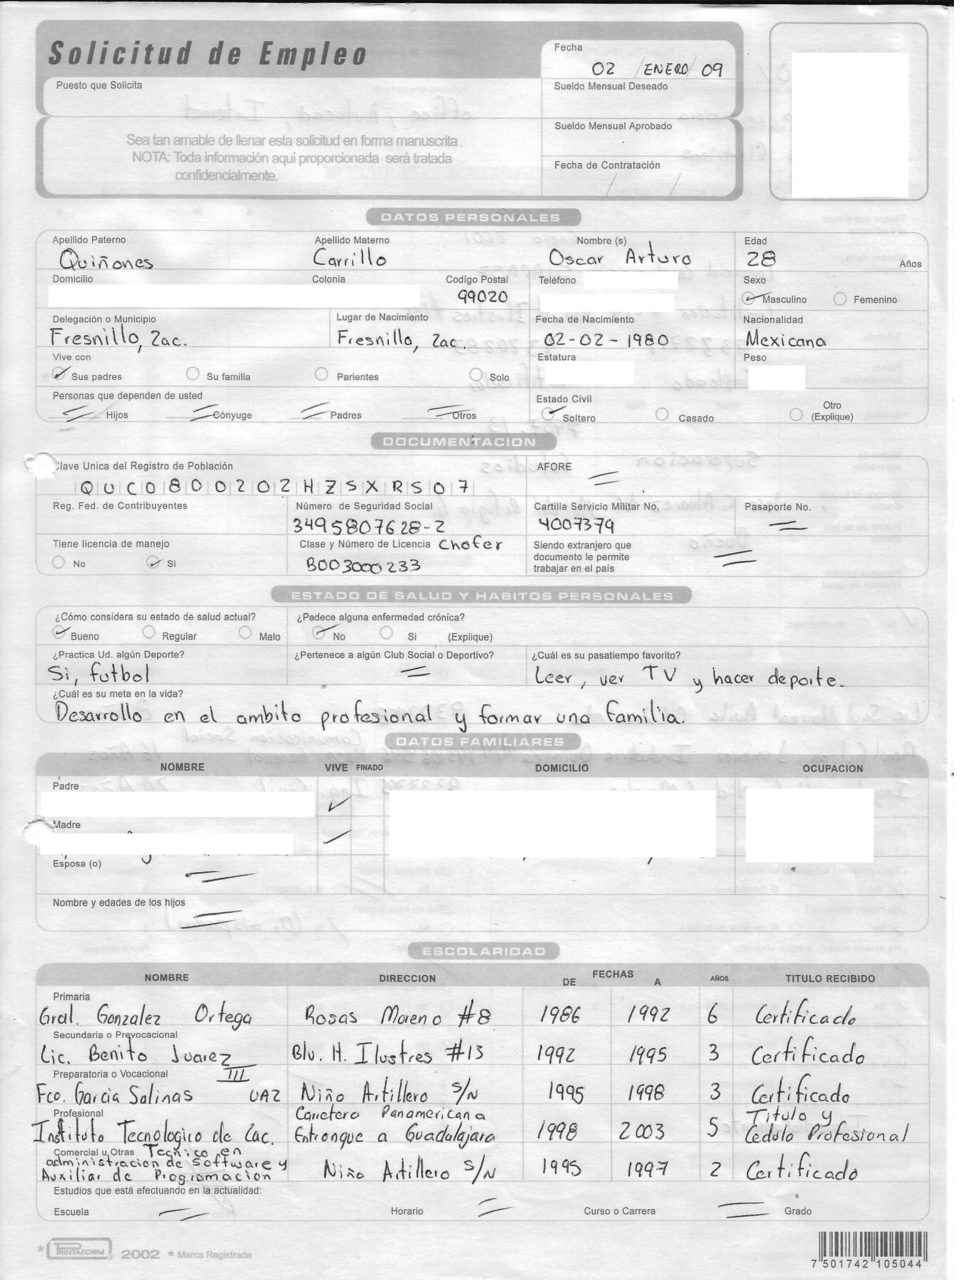 Solicitud de Empleo
Fecha
02 / ENERO / 09
Puesto que Solicita
Sueldo Mensual Deseado
Sea tan amable de llenar esta solicitud en forma manuscrita
NOTA: Toda información aqui proporcionada será tratada
confidencialmente.
Sueldo Mensual Aprobado
Fecha de Contratación
/ /
DATOS PERSONALES
Apellido Paterno Apellido Materno Nombre (s) Edad
Quiñones Carrillo Oscar Arturo 28 Años
Domicilio Colonia Codigo Postal Teléfono Sexo
99020 Masculino Femenino
Delegación o Municipio Lugar de Nacimiento Fecha de Nacimiento Nacionalidad
Fresnillo, Zac. Fresnillo, Zac. 02-02-1980 Mexicana
Vive con Estatura Peso
Sus padres Su familia Parientes Solo
Personas que dependen de usted Estado Civil
Hijos Cónyuge Padres Otros Soltero Casado Otro
(Explique)
DOCUMENTACION
Clave Unica del Registro de Población AFORE
QUCO800202HZSXRS07
Reg. Fed. de Contribuyentes Número de Seguridad Social Cartilla Servicio Militar No. Pasaporte No.
3495807628-2 4007379
Tiene licencia de manejo Clase y Número de Licencia Chofer Siendo extranjero que
documento le permite
trabajar en el país
No Si B003000233
ESTADO DE SALUD Y HABITOS PERSONALES
¿Cómo considera su estado de salud actual? ¿Padece alguna enfermedad crónica?
Bueno Regular Malo No Si (Explique)
¿Practica Ud. algún Deporte? ¿Pertenece a algún Club Social o Deportivo? ¿Cuál es su pasatiempo favorito?
Si, futbol Leer, ver TV y hacer deporte.
¿Cuál es su meta en la vida?
Desarrollo en el ambito profesional y formar una familia.
DATOS FAMILIARES
NOMBRE VIVE FINADO DOMICILIO OCUPACION
Padre
Madre
Esposa (o)
Nombre y edades de los hijos
ESCOLARIDAD
NOMBRE DIRECCION FECHAS AÑOS TITULO RECIBIDO
DE A
Primaria
Gral. Gonzalez Ortega Rosas Moreno #8 1986 1992 6 Certificado
Secundaria o Prevocacional
Lic. Benito Juarez Blv. H. Ilustres #13 1992 1995 3 Certificado
Preparatoria o Vocacional
Fco. Garcia Salinas III UAZ Niño Artillero s/N 1995 1998 3 Certificado
Profesional
Instituto Tecnologico de Zac. Carretera Panamericana Entronque a Guadalajara 1998 2003 5 Titulo y Cedula Profesional
Comercial u Otras Tecnico en
administracion de Software y
Auxiliar de Programacion Niño Artillero s/N 1995 1997 2 Certificado
Estudios que está efectuando en la actualidad:
Escuela Horario Curso o Carrera Grado
* PRINTAFORM 2002 * Marca Registrada
7 501742 105044